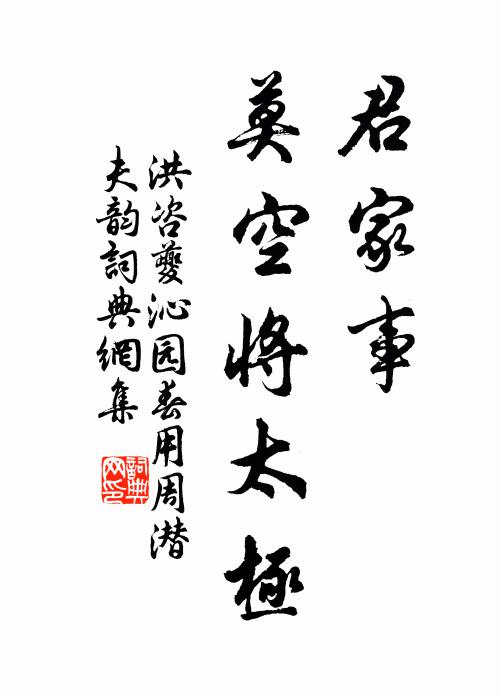 君家事
莫空将太極
洪咨夔沁园春用周潜
夫韵詞典網集
詞典網印